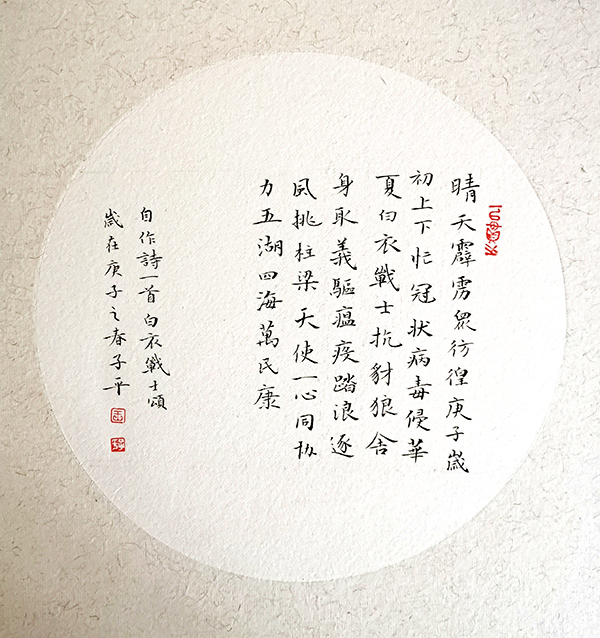 晴天霹雳眾彷徨庚子歲
初上下忙冠狀病毒侵華
夏白衣戰士抗豺狼舍
身取義驅瘟疫踏浪逐
風挑柱梁天使一心同協
力五湖四海萬民康
自作詩一首白衣戰士頌
歲在庚子之春子平